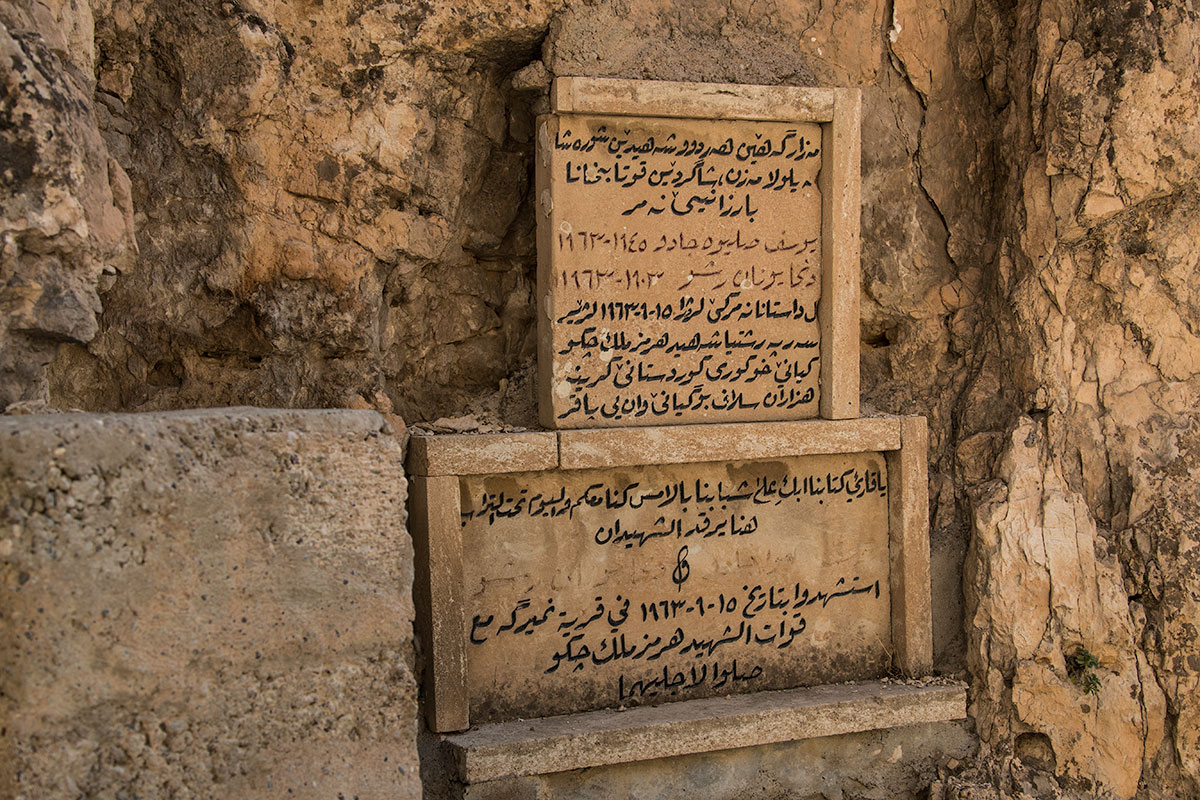 مەزارگەهێن هەردوو شەهیدێن شورەشا
ئیلولا مەزن، شاگردێن قوتابخانا
بارزانیێ نەمر
یوسف صلیوه جادو ١٩٤٥-١٩٦٣
دنخا یونان رشو ١٩٠٣-١٩٦٣
ل داستانا نەمرگێ لروژا ١٥-٩-١٩٦٣ لژێر
سەرپەرشتیا شەهید هرمز ملك چكو
گیانێ خو گوری كوردستانێ كرینە
هزاران سلاڤ بو گیانێ وان یی پاقژ
ياقارئ كتابنا ابك على شبابنا بالامس كنا معكم واليوم تحت التراب
هنا يرقد الشهيدان
و
استشهدوا بتاريخ ١٥-٩-١٩٦٣ في قرية نميرگه مع
قوات الشهيد هرمز ملك چكو
صلوا لاجليهما